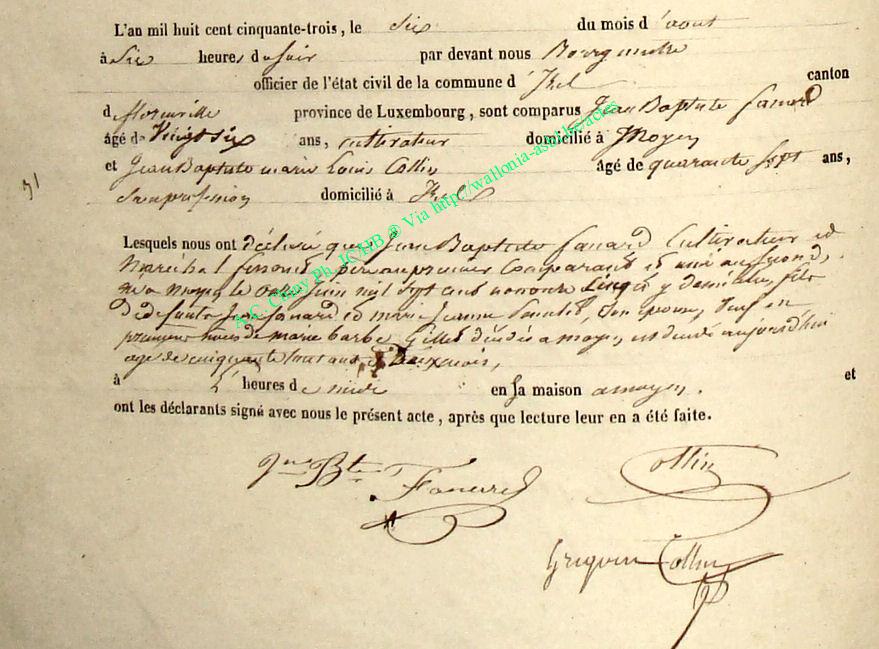 L'an mil huit cent cinquante-trois, le six du mois d'août
à six heures du soir par devant nous Bourgmestre
officier de l'état civil de la commune d'Izel canton
d Florenville province de Luxembourg, sont comparus Jean Baptiste Fanard
âgé de vingt six ans, cultivateur domicilié à Moyen
et Jean Baptiste marie Louis Collin âgé de quarante sept ans,
sans profession domicilié à Izel
51
Lesquels nous ont déclaré que Jean Baptiste Fanard Cultivateur et
Maréchal ferrant, père au premier Comparant et ami au second,
né a moyen le onze juin mil sept cent nonante cinq et y domicilié, fils
de défunts Fanard et marie Jeanne son épouse, veuf en
premières noces de marie barbe Gilles décédée a moyen, est décédé aujourd'hui
agé de cinquante huit ans et deux mois,
à heures de midi en sa maison a moyen. et
ont les déclarants signé avec nous le présent acte, après que lecture leur en a été faite.
Jean Bte Fanard Collin
Collin
A.C. Copy Ph. JCHB @ Via http://wallonia-asbl.be/actes